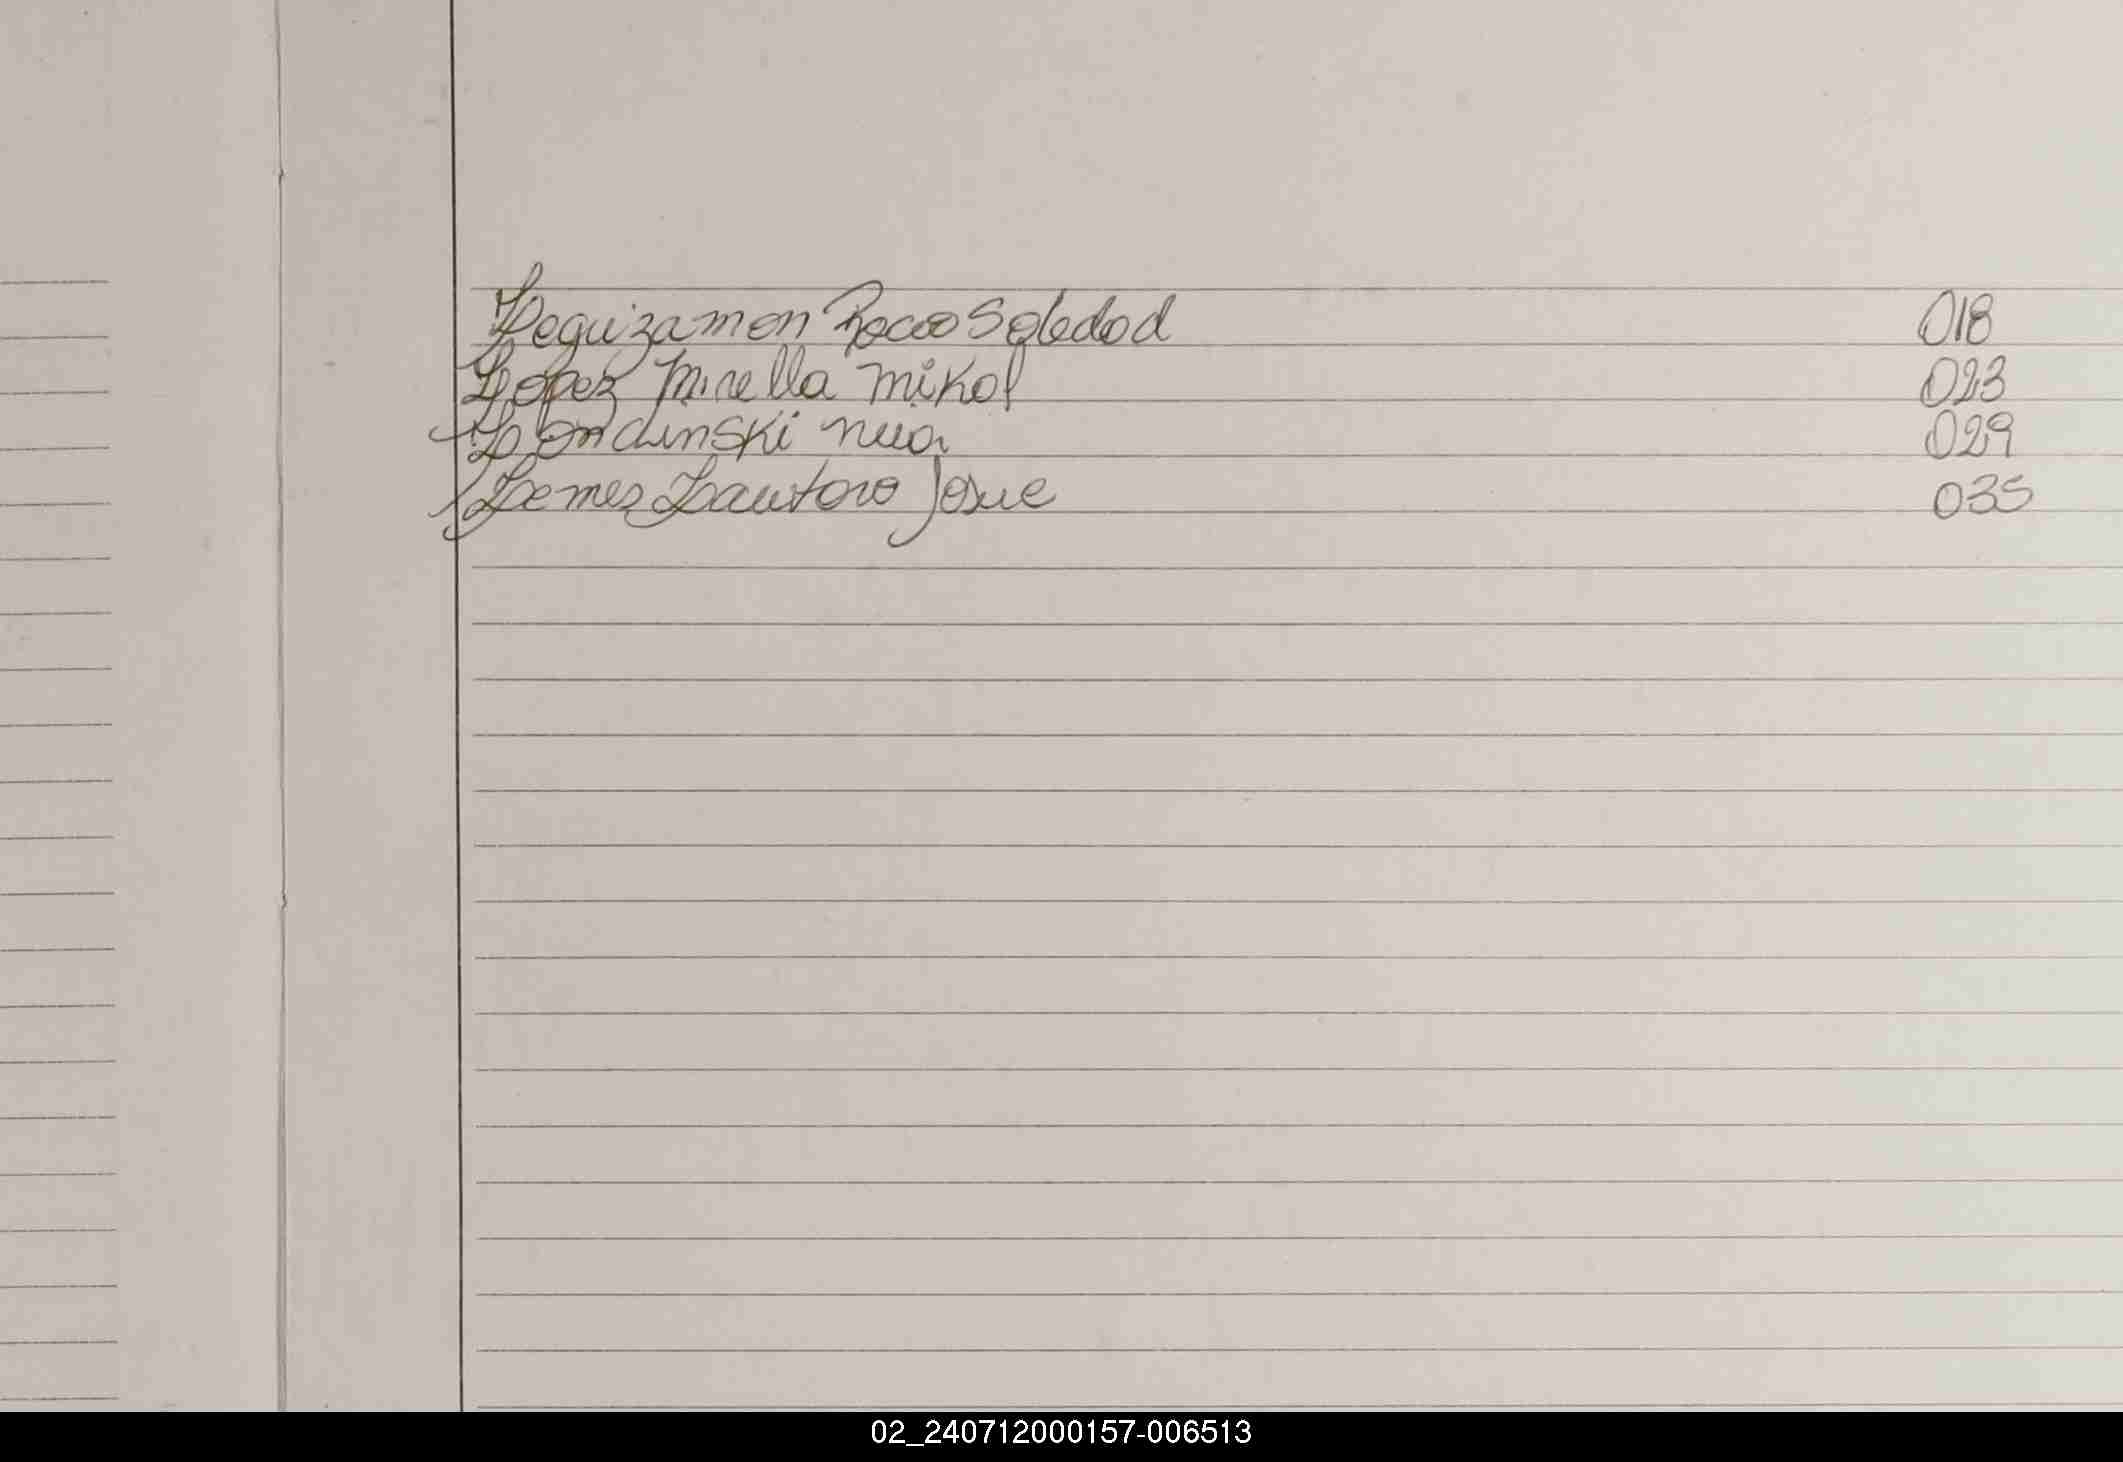 Leguizamon Rocio Soledad 018
Lopez Mirella Mikol 023
Londinski 029
Lemes Lautaro Josue 035
02_240712000157-006513